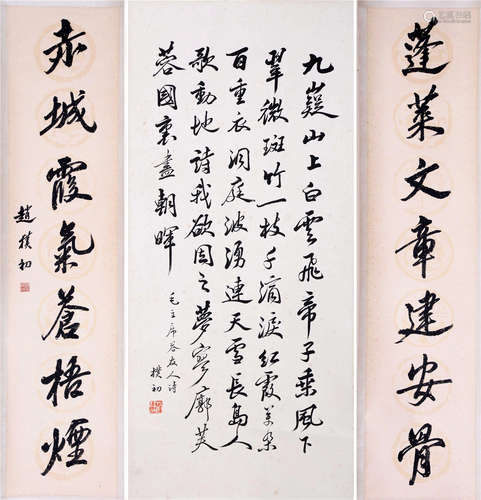 蓬萊文章建安骨
九嶷山上白雲飛帝子乘風下
翠微斑竹一枝千滴淚紅霞萬朵
百重衣洞庭波湧連天雪長島人
歌動地詩我欲因之夢寥廓芙
蓉國裏盡朝暉
毛主席答友人詩
樸初
赤城霞氣蒼梧煙
趙樸初